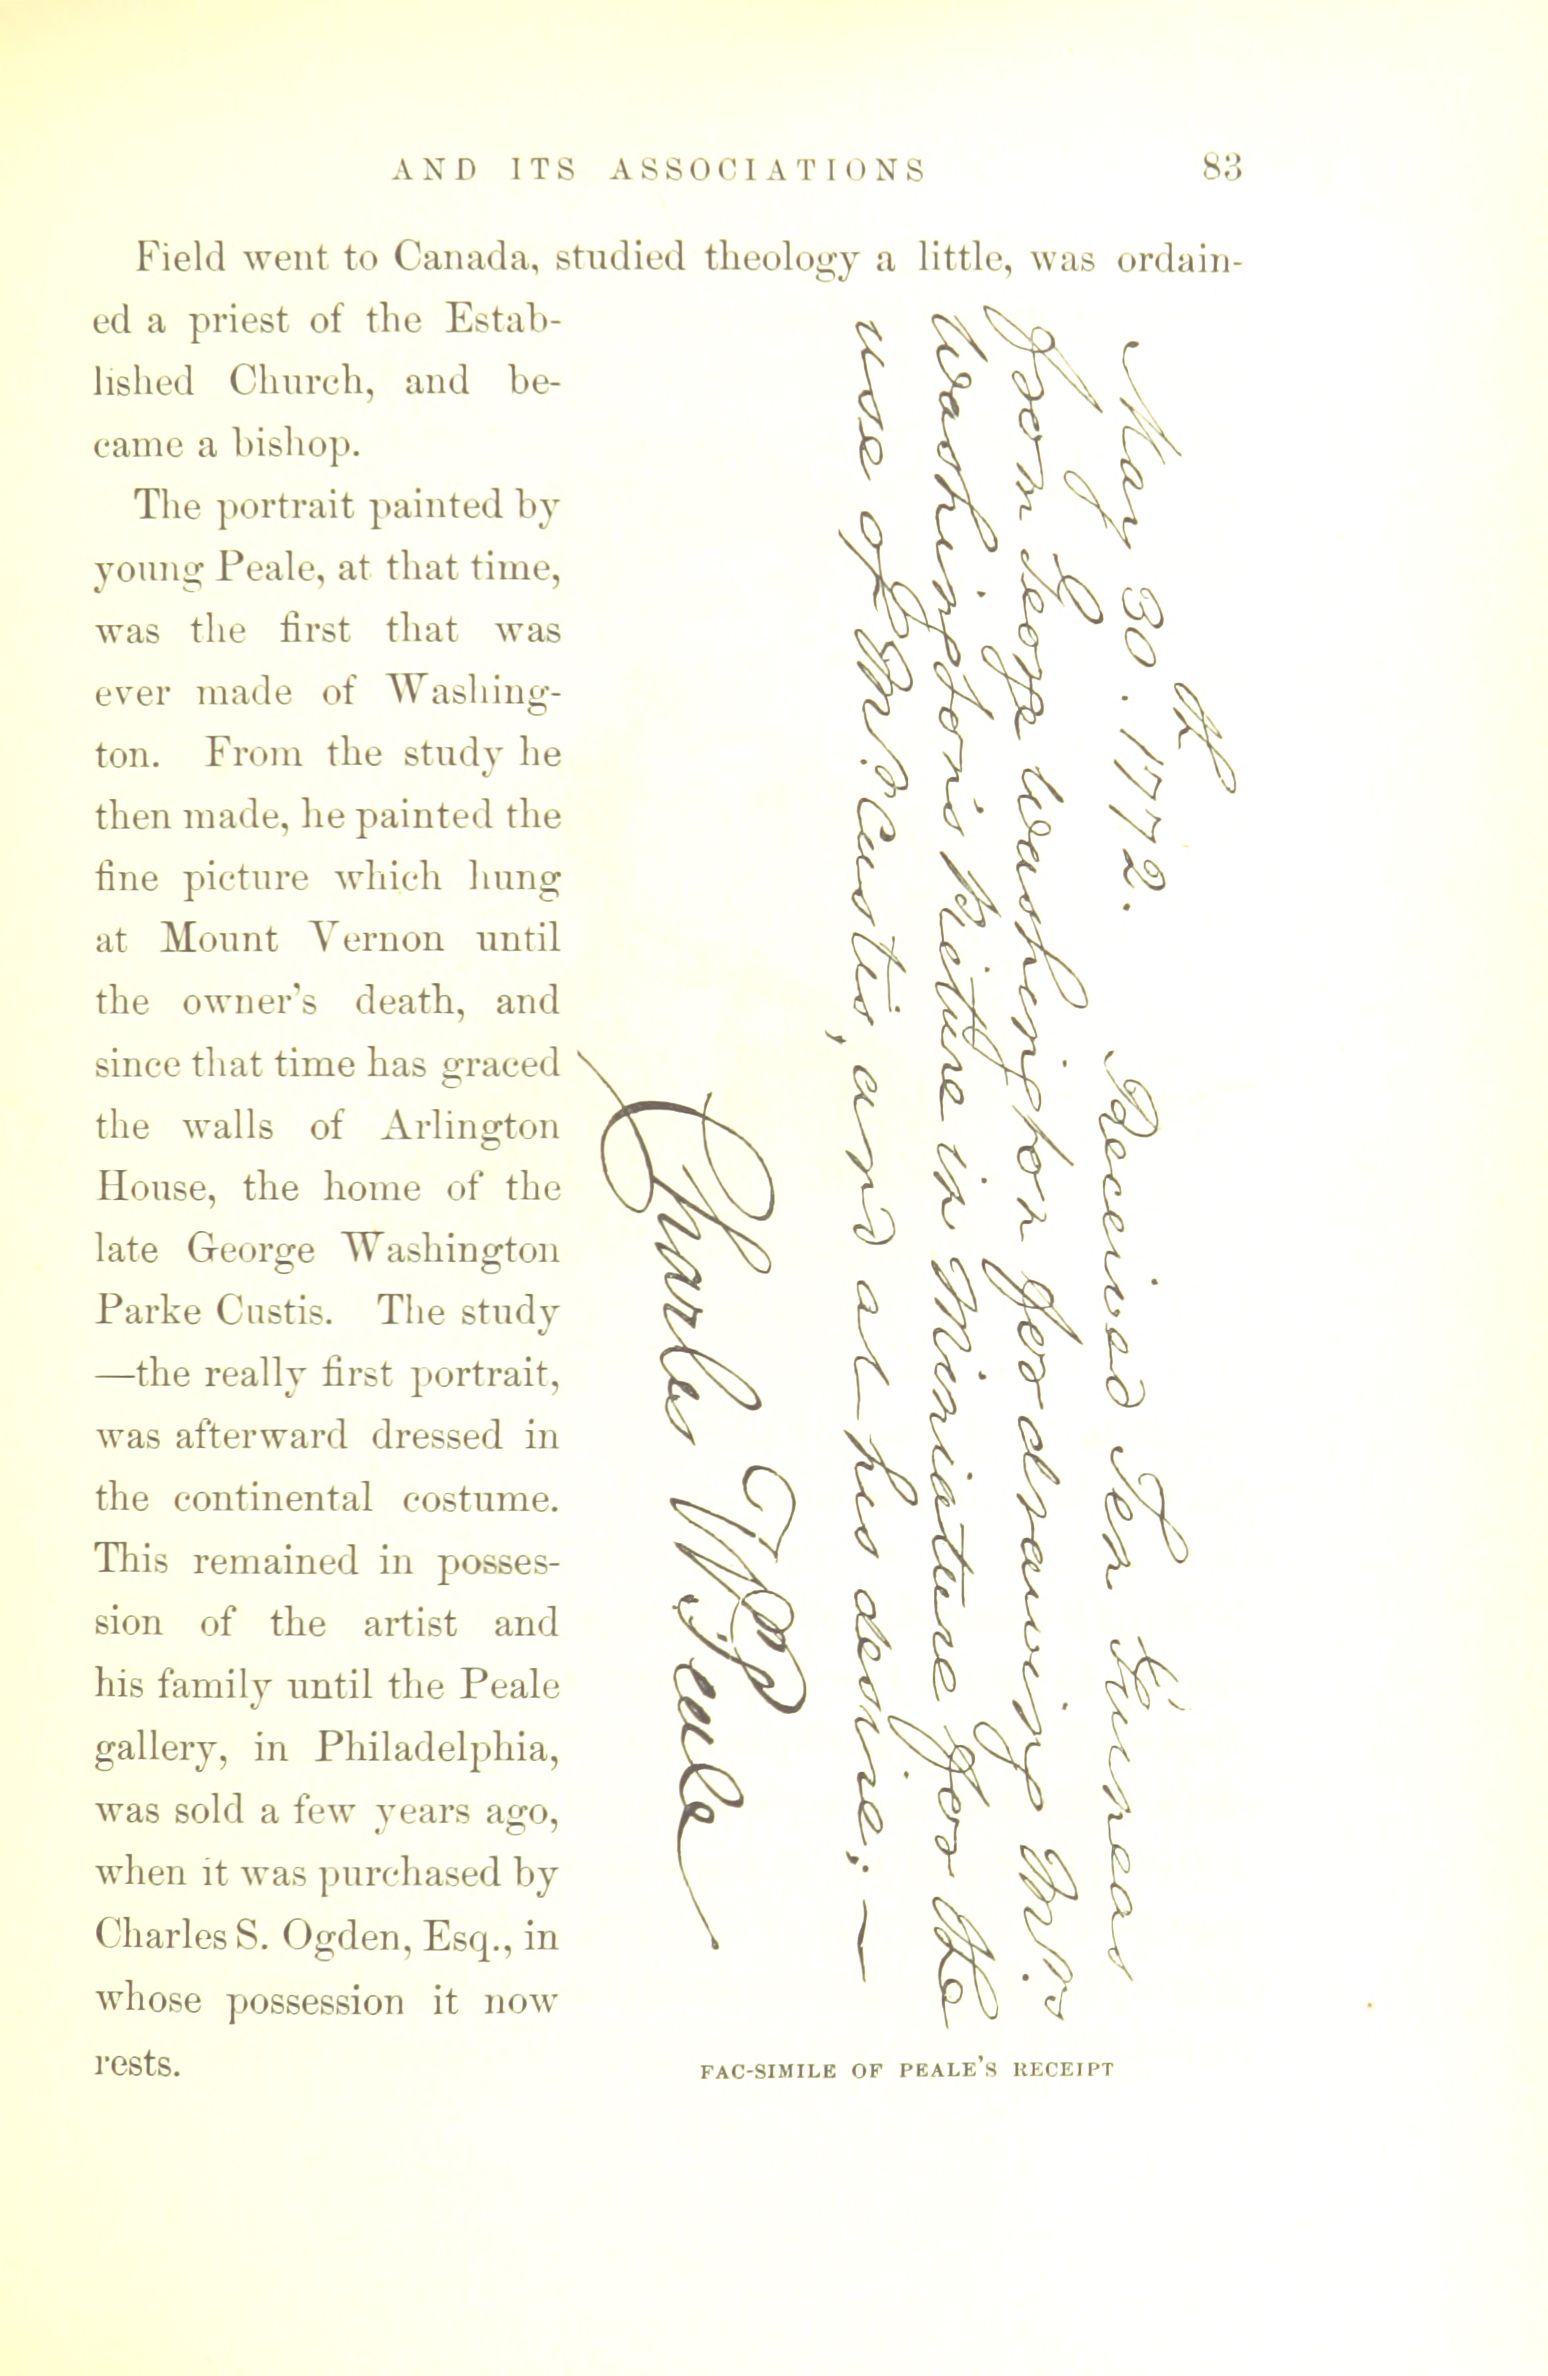 AND ITS ASSOCIATIONS 83
Field went to Canada, studied theology a little, was ordain-
ed a priest of the Estab-
lished Church, and be-
came a bishop.
The portrait painted by
young Peale, at that time,
was the first that was
ever made of Washing-
ton. From the study he
then made, he painted the
fine picture which hung
at Mount Vernon until
the owner's death, and
since that time has graced
the walls of Arlington
House, the home of the
late George Washington
Parke Custis. The study
—the really first portrait,
was afterward dressed in
the continental costume.
This remained in posses-
sion of the artist and
his family until the Peale
gallery, in Philadelphia,
was sold a few years ago,
when it was purchased by
Charles S. Ogden, Esq., in
whose possession it now
rests.
May 30th. 1772. Received Ten Guineas
from George Washington for drawing Mrs
Washington's Picture in Miniature for the
use of Mr. Custis, and at his desire; —
Charles W. Peale
FAC-SIMILE OF PEALE'S RECEIPT